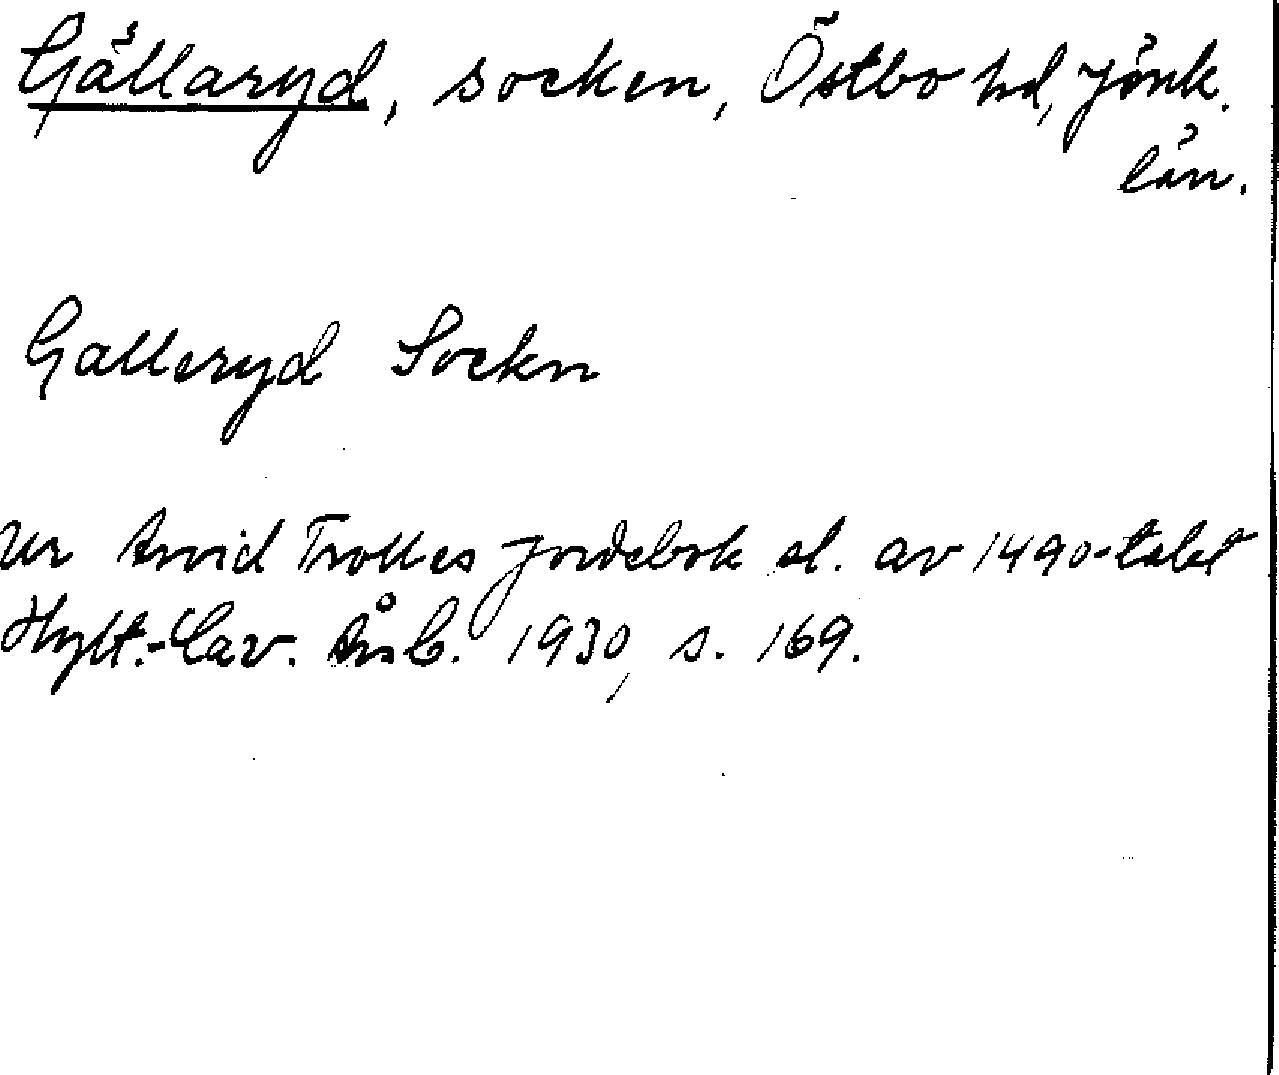 Gällaryd, socken, Östbo hd, Jönk.
län.
Galleryd Sockn
Ur Arvid Trolles jordebok sl. av 1490-talet
Hylt.-Cav. Årsb. 1930, s. 169.